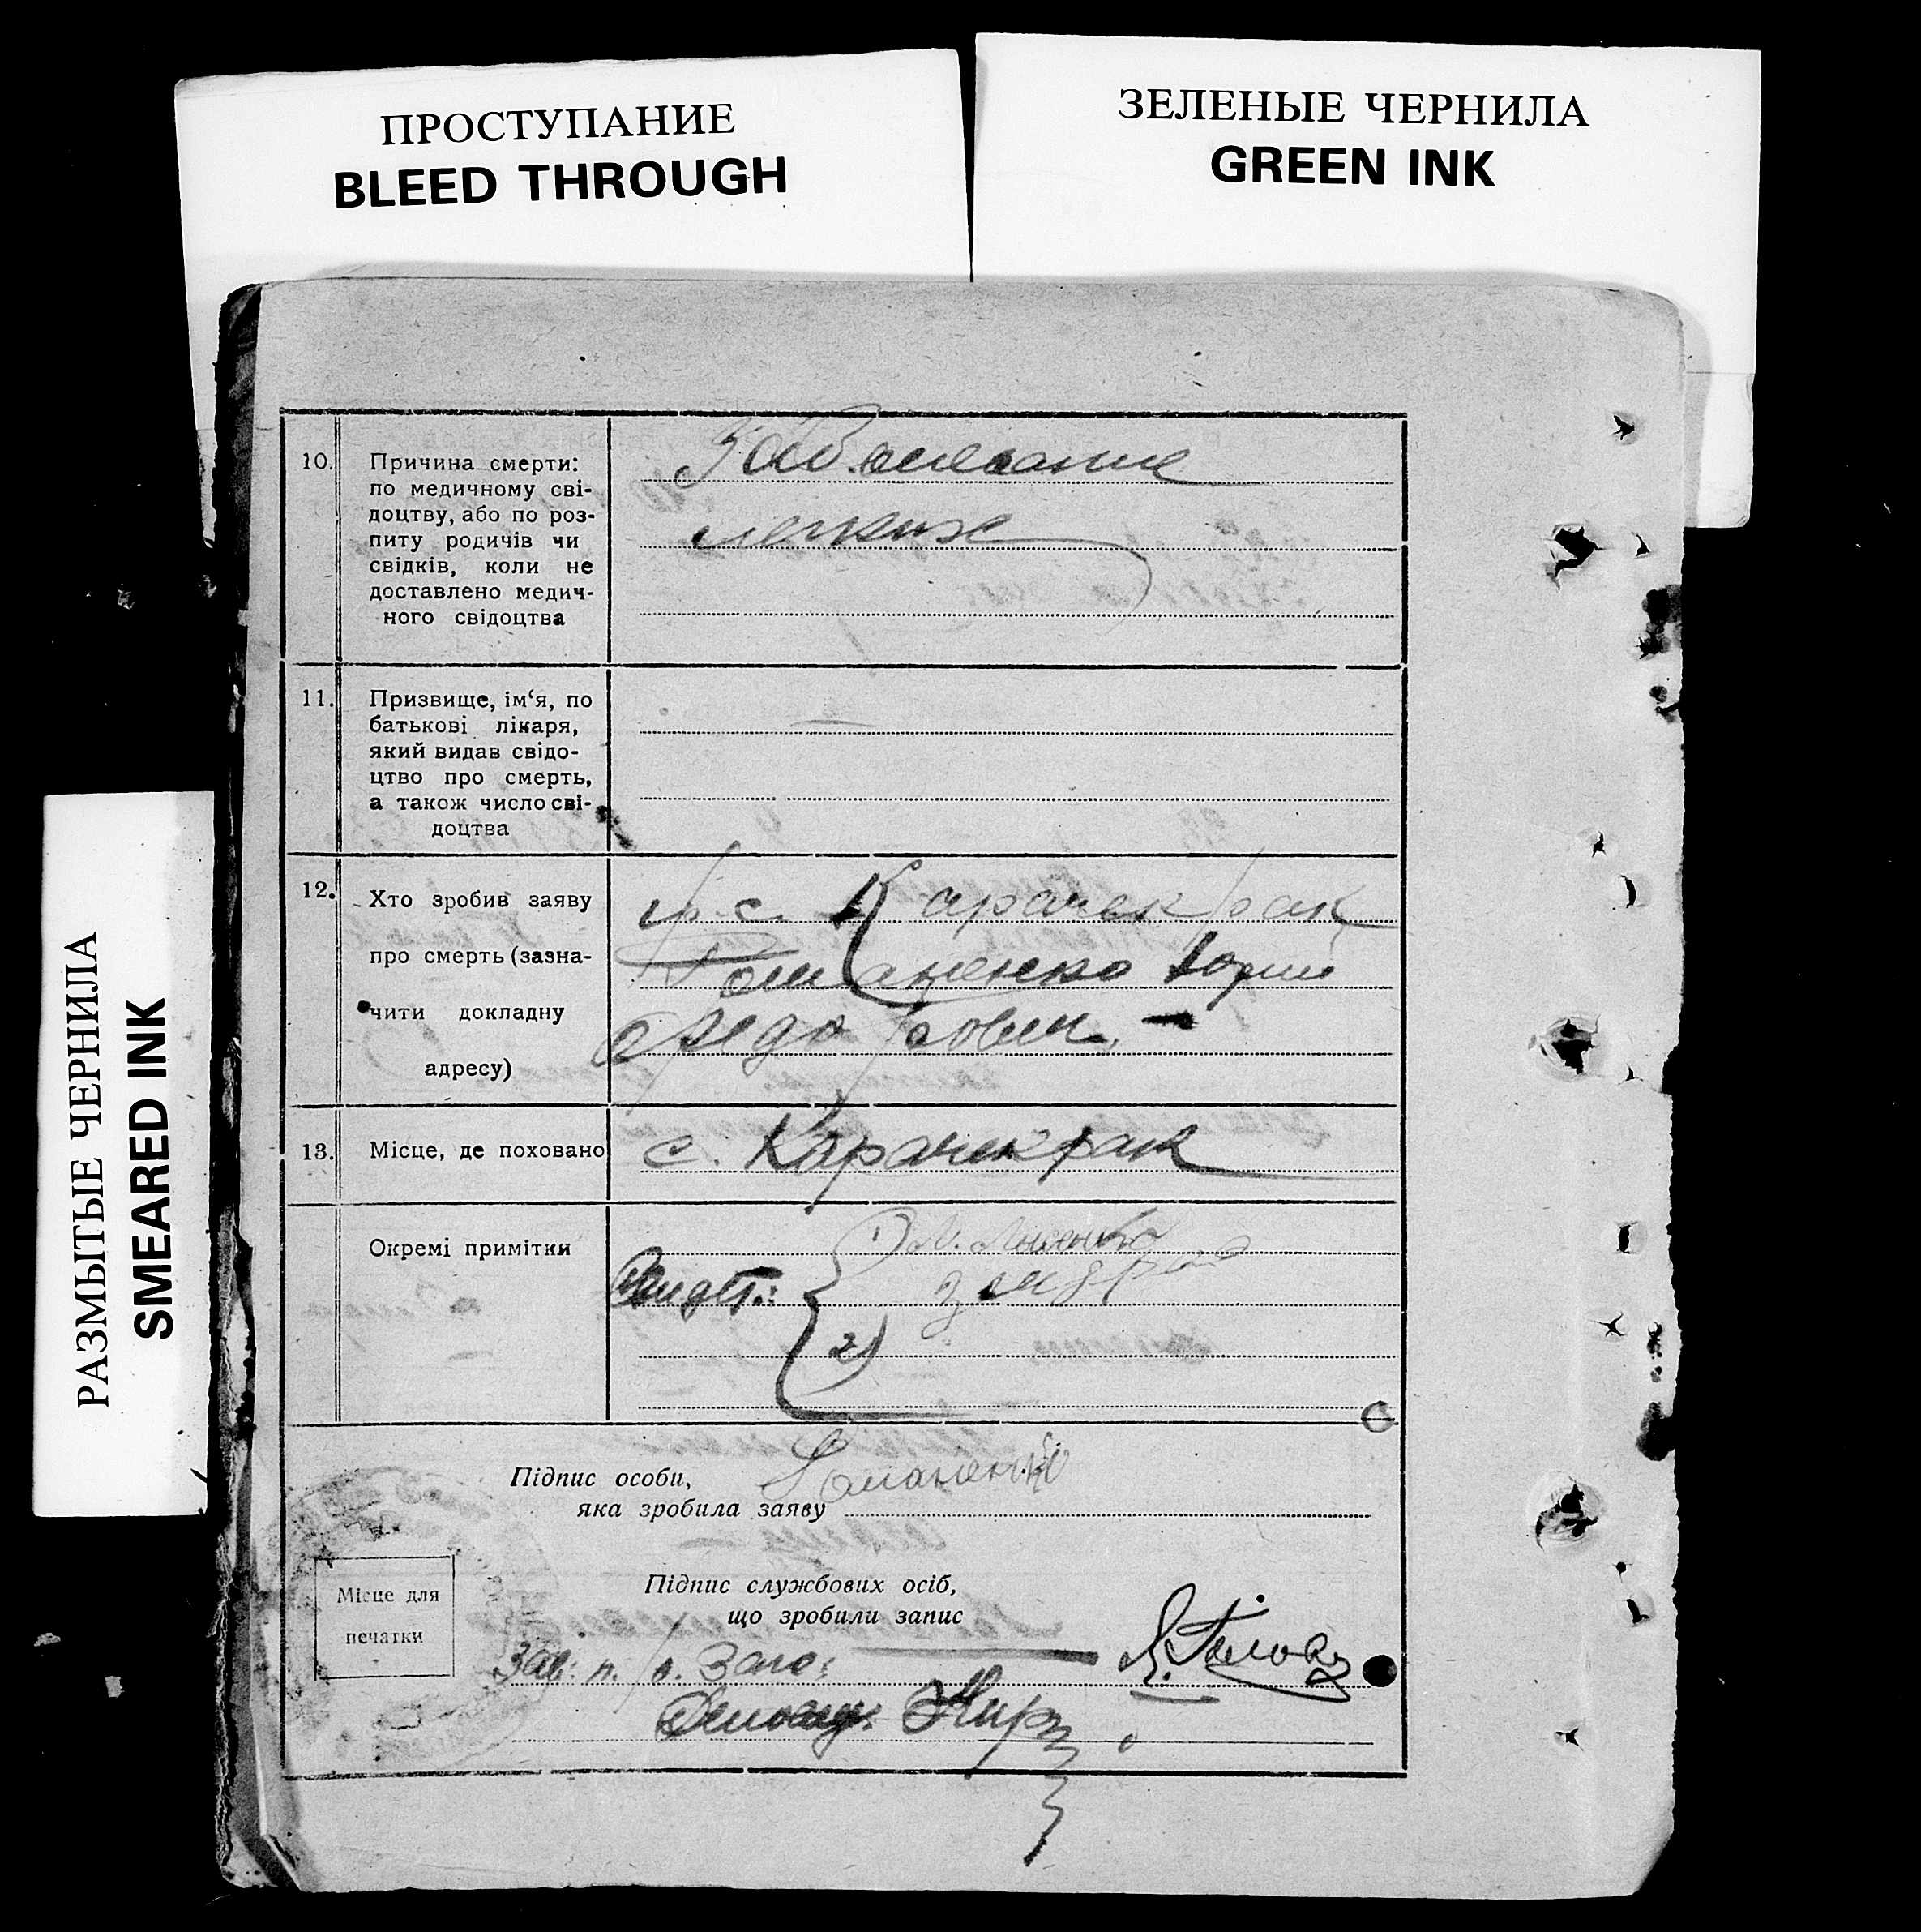 ПРОСТУПАНИЕ
BLEED THROUGH
ЗЕЛЕНЫЕ ЧЕРНИЛА
GREEN INK
РАЗМЫТЫЕ ЧЕРНИЛА
SMEARED INK
10. Причина смерти:
по медичному сві-
доцтву, або по роз-
питу родичів чи
свідків, коли не
доставлено медич-
ного свідоцтва
легких
11. Призвище, ім‘я, по
батькові лікаря,
який видав свідо-
цтво про смерть,
а також число сві-
доцтва
12. Хто зробив заяву
про смерть (зазна-
чити докладну
адресу)
гр. с. Карачекрак
Романенко Юрий
Федорович
13. Місце, де поховано
с. Карачекрак
Окремі примітки
1)
2)
Підпис особи,
яка зробила заяву
Романенко
Місце для
печатки
Підпис службових осіб,
що зробили запис
Зав. п/в. Загс:
Діловод.